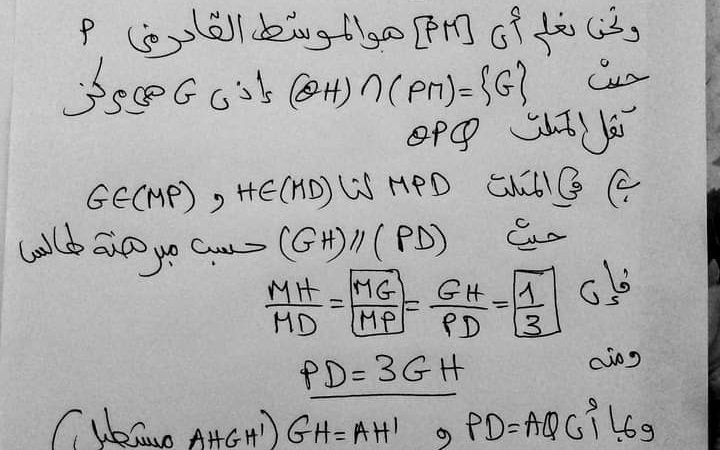 ونحن نعلم أن [PM] هو الموسّط القادر من P
حيث (OH)∩(PM)={G} إذن G هي مركز
ثقل المثلث OPQ
ج) في المثلث MPD لنا H∈(MD) و G∈(MP)
حيث (GH)//(PD) حسب مبرهنة طالس
فإن MH/MD = MG/MP = GH/PD = 1/3
ومنه
PD=3GH
وبما أن PD=AQ و GH=AH' (AHGH' مستطيل)